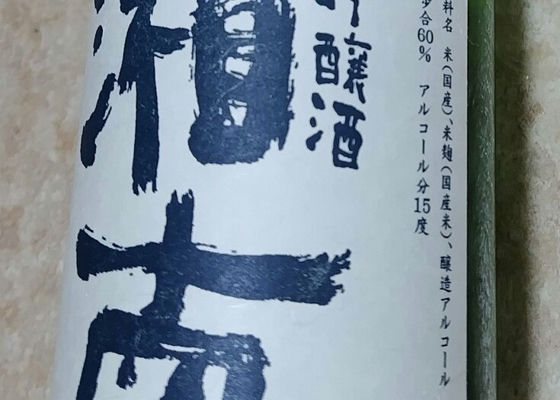 料名 米(国産)、米麹(国産米)、醸造アルコール
歩合60% アルコール分15度
醸酒
湘